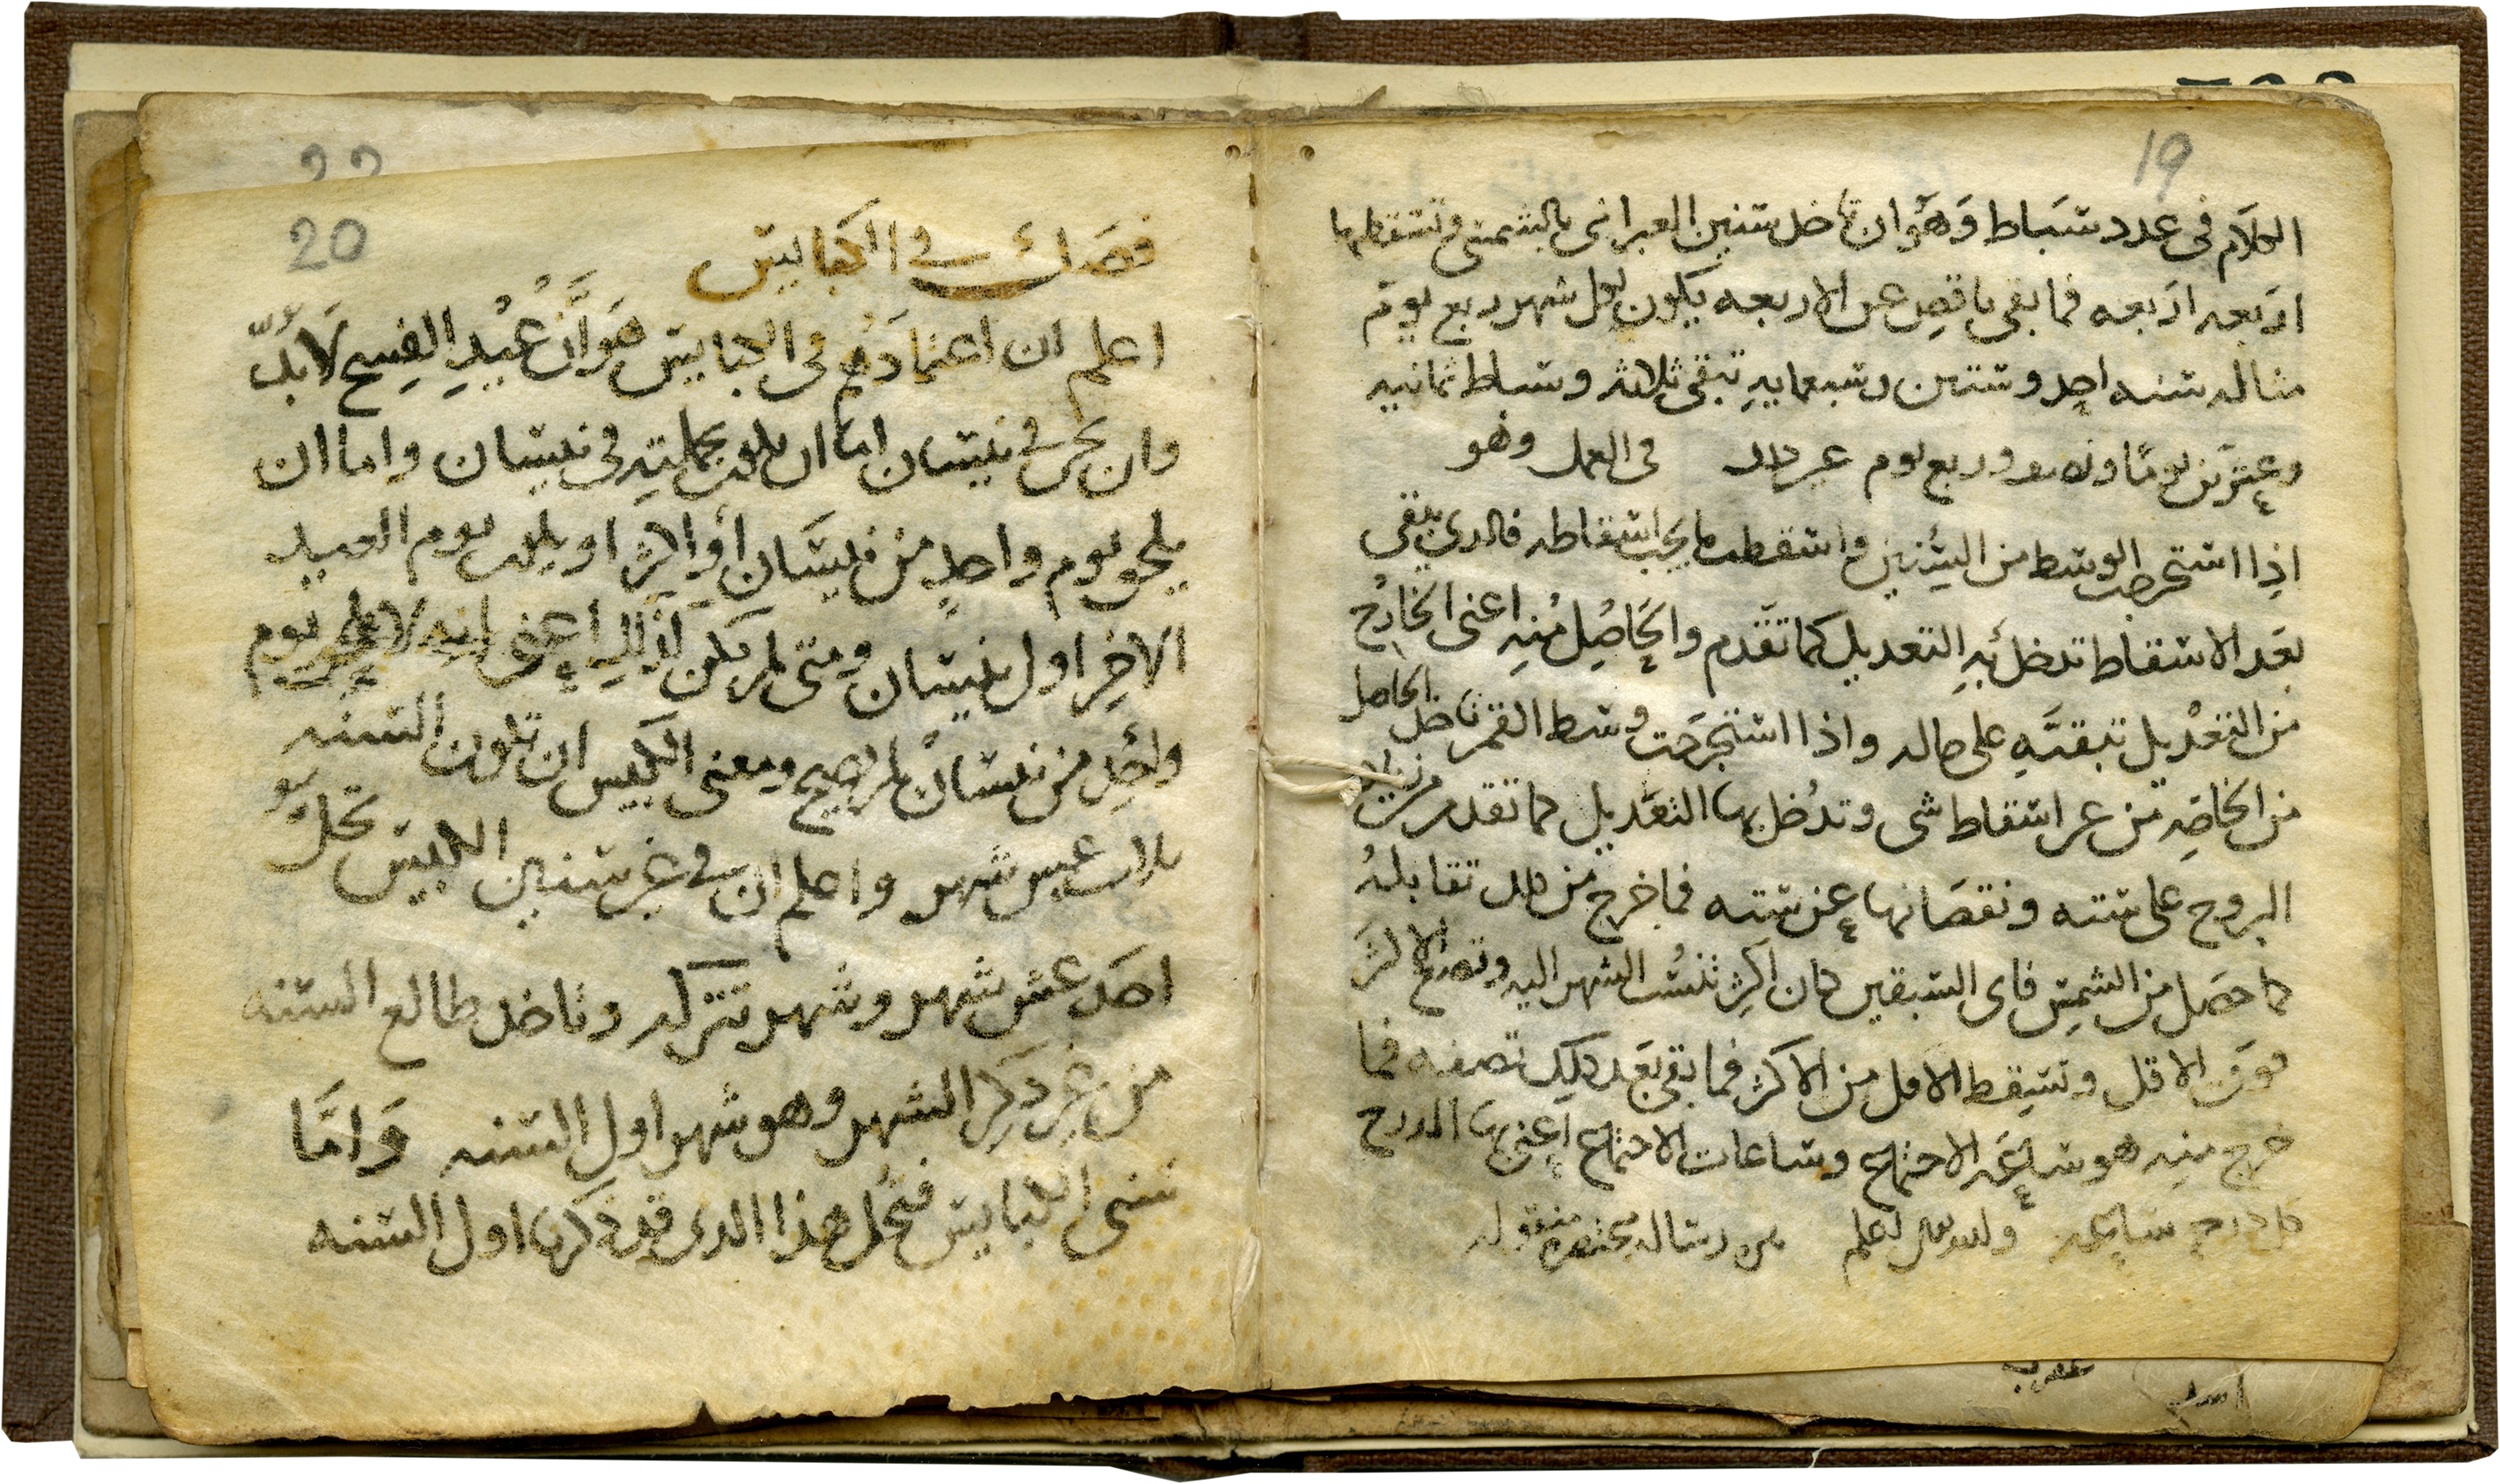 19
الكلام فى عدد شباط وهو ان تاخد سنين العبرانى بالشمسى وتسقطها
اربعه اربعه فما بقى ناقص عن الاربعه يكون لكل شهر ربع يوم
مثاله سنه احد وستين وسبعمايه تبقى ثلاثه وشباط ثمانيه
وعشرين يوما وربع يوم فى العمل وهو
اذا استخرجت الوسط من السنين واسقطت ما يجب اسقاطه فالدى يبقى
بعد الاسقاط تدخل به التعديل كما تقدم والحاصل منه اعنى الخارج
من التعديل تبقيه على حاله واذا استخرجت وسط القمر تاخد الحاصل
من الخاصه من غير اسقاط شى وتدخل بها التعديل كما تقدم من
البروج على سته ونقصانها عن سته فما خرج من تقابله
كما حصل من الشمس فاى السبقين كان اكثر تنسب الشهر اليه وتضع الاكثر
فوق الاقل وتسقط الاقل من الاكثر فما بقى بعد دلك تصفه فما
خرج منه هو ساعه الاجتماع وساعات الاجتماع اعنى بها الدرج
كل درج ساعه رساله مختصره منقوله
20
22
فصل فى الكبايس
اعلم ان اعتمادهم فى الكبايس هو ان عيد الفسح لابد
وان يجى فى نيسان اما ان يكون بجملته فى نيسان واما ان
يلحق يوم واحد من نيسان او اكثر او يكون يوم العيد
الاخر اول نيسان ومتى لم يكن كدلك اعنى انه لا يلحق يوم
واحد من نيسان لم يصح ومعنى الكبيس ان تكون السنه
ثلاث عشر شهر واعلم ان فى غير سنين الكبيس تحل
احد عشر شهر وشهر تتركه وتاخد طالع السنه
من غير ذكر الشهر وهو شهر اول السنه واما
سنى الكبايس فتحل هذا الدى قد ذكرنا اول السنه
عقرب
اسد